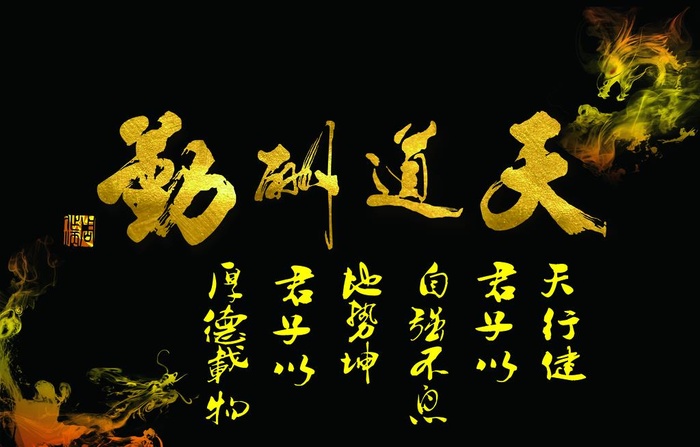 天道酬勤
天行健
君子以
自強不息
地勢坤
君子以
厚德載物